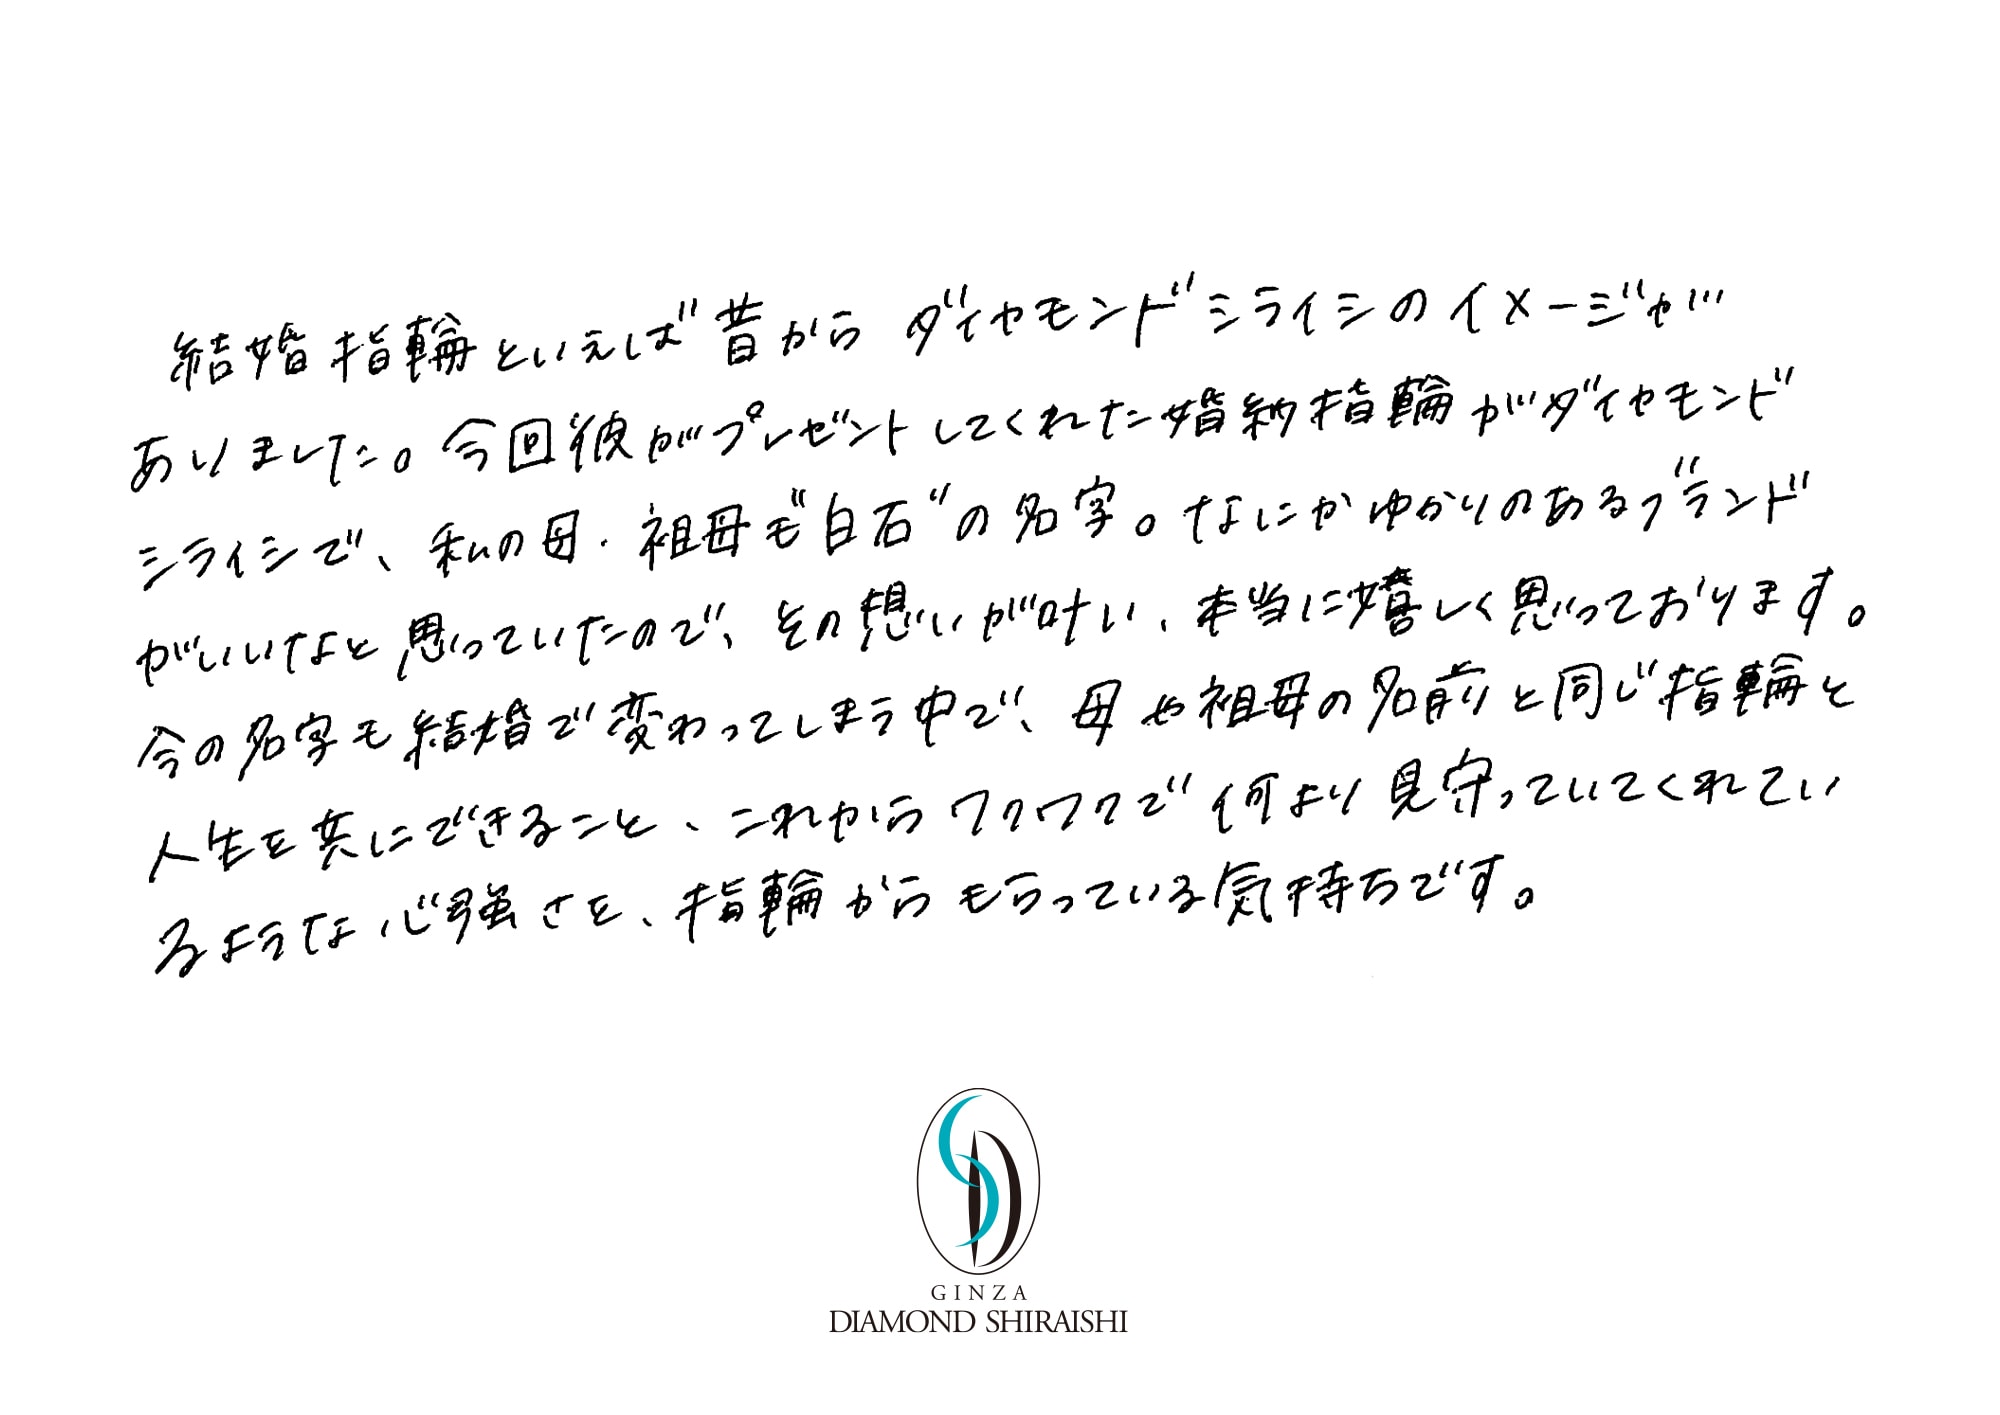 結婚指輪といえば昔から ダイヤモンドシライシのイメージが
ありました。今回彼がプレゼントしてくれた婚約指輪がダイヤモンド
シライシで、私の母・祖母も"白石"の名字。なにかゆかりのあるブランド
がいいなと思っていたので、その想いが叶い、本当に嬉しく思っております。
今の名字も結婚で変わってしまう中で、母や祖母の名前と同じ指輪と
人生を共にできること、これからワクワクで何より見守っていてくれてい
るような心強さを、指輪からもらっている気持ちです。
GINZA
DIAMOND SHIRAISHI